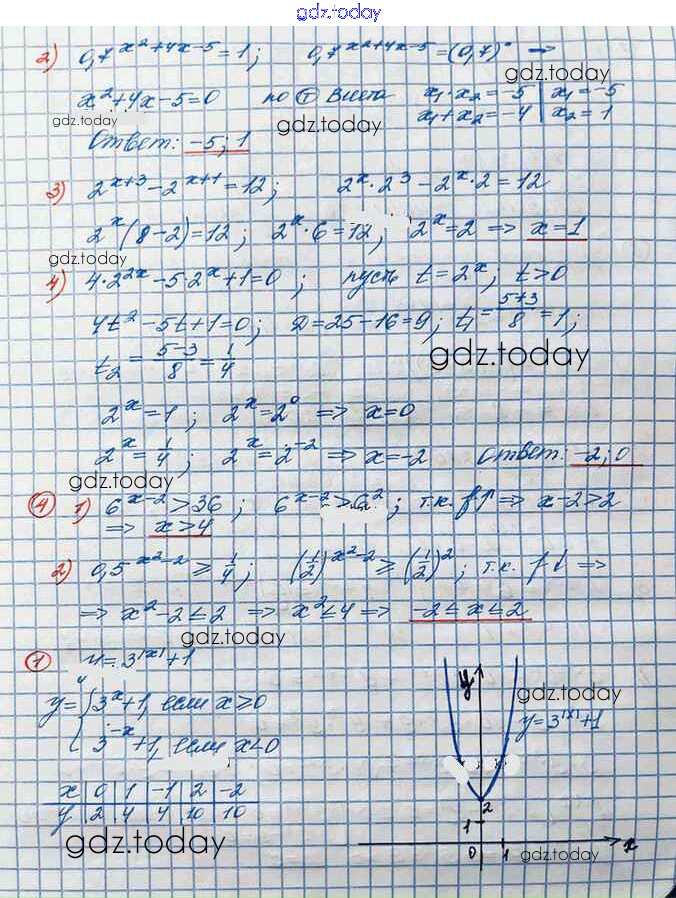 gdz.today
2) 0,7^(x²+4x-5) = 1; 0,7^(x²+4x-5) = (0,7)° →
gdz.today
x²+4x-5=0 по Ⓣ Виета x₁·x₂=-5 | x₁=-5
x₁+x₂=-4 | x₂=1
gdz.today
gdz.today
Ответ: -5; 1
3) 2^(x+3) - 2^(x+1) = 12; 2^x·2³ - 2^x·2 = 12
2^x(8-2)=12; 2^x·6=12; 2^x=2 => x=1
gdz.today
4) 4·2^(2x) - 5·2^x + 1 = 0; пусть t=2^x; t>0
4t²-5t+1=0; D=25-16=9; t₁=(5+3)/8=1;
gdz.today
t₂=(5-3)/8=1/4
2^x=1; 2^x=2^0 => x=0
2^x=1/4; 2^x=2^(-2) => x=-2 Ответ: -2; 0
gdz.today
④ 1) 6^(x-2)>36; 6^(x-2)>6²; т.к. f↑ => x-2>2
=> x>4
2) 0,5^(x²-2) ≥ 1/4; (1/2)^(x²-2) ≥ (1/2)²; т.к. f↓ =>
=> x²-2≤2 => x²≤4 => -2≤x≤2
gdz.today
① y=3^|x|+1
y={3^x+1, если x≥0
3^(-x)+1, если x<0
x | 0 | 1 | -1 | 2 | -2
y | 2 | 4 | 4 | 10 | 10
gdz.today
y
gdz.today
y=3^|x|+1
2
1
0 1 x
gdz.today